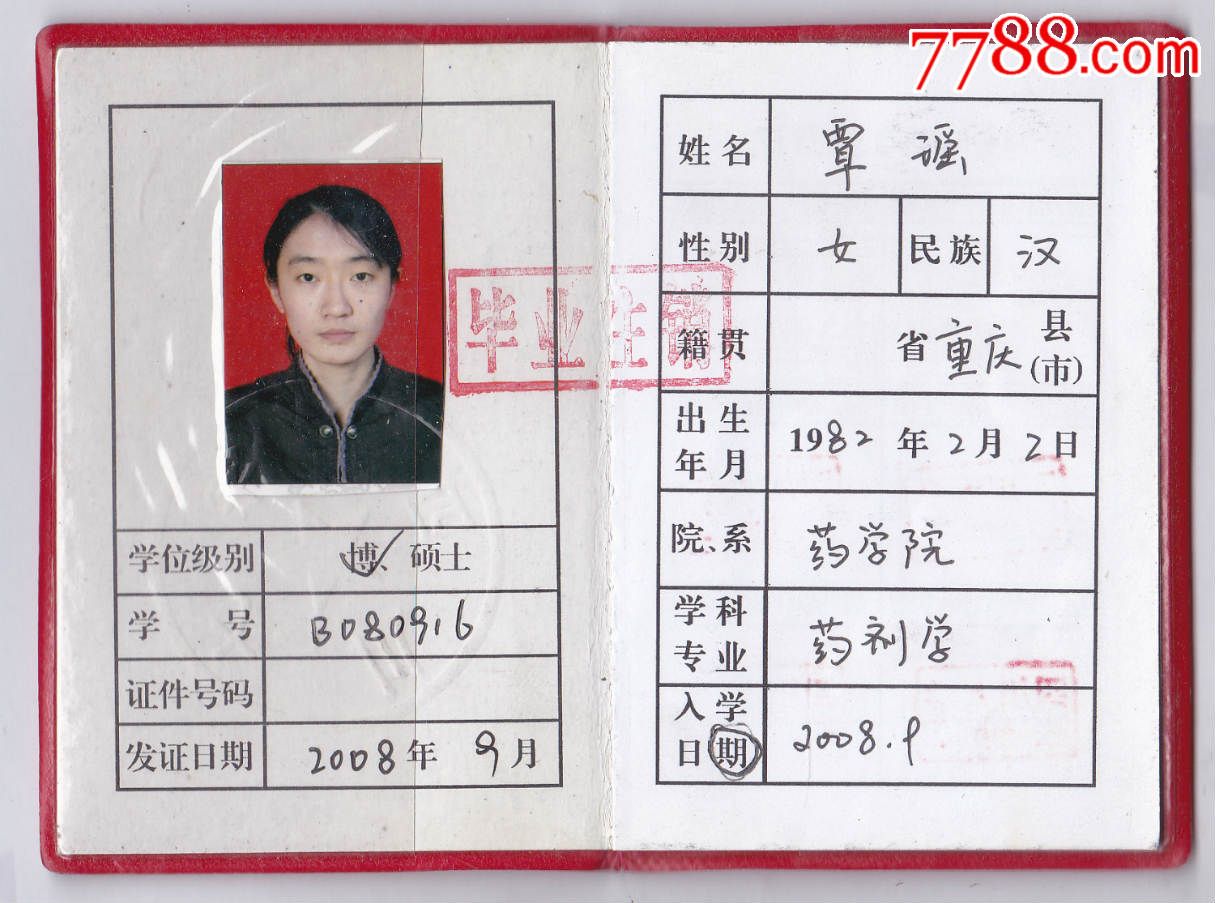 7788.com
学位级别 博、硕士
学 号 B080916
证件号码
发证日期 2008年 9月
毕业注销
姓名 覃瑶
性别 女 民族 汉
籍贯 省重庆县(市)
出生年月 1982年2月2日
院、系 药学院
学科专业 药剂学
入学日期 2008.9